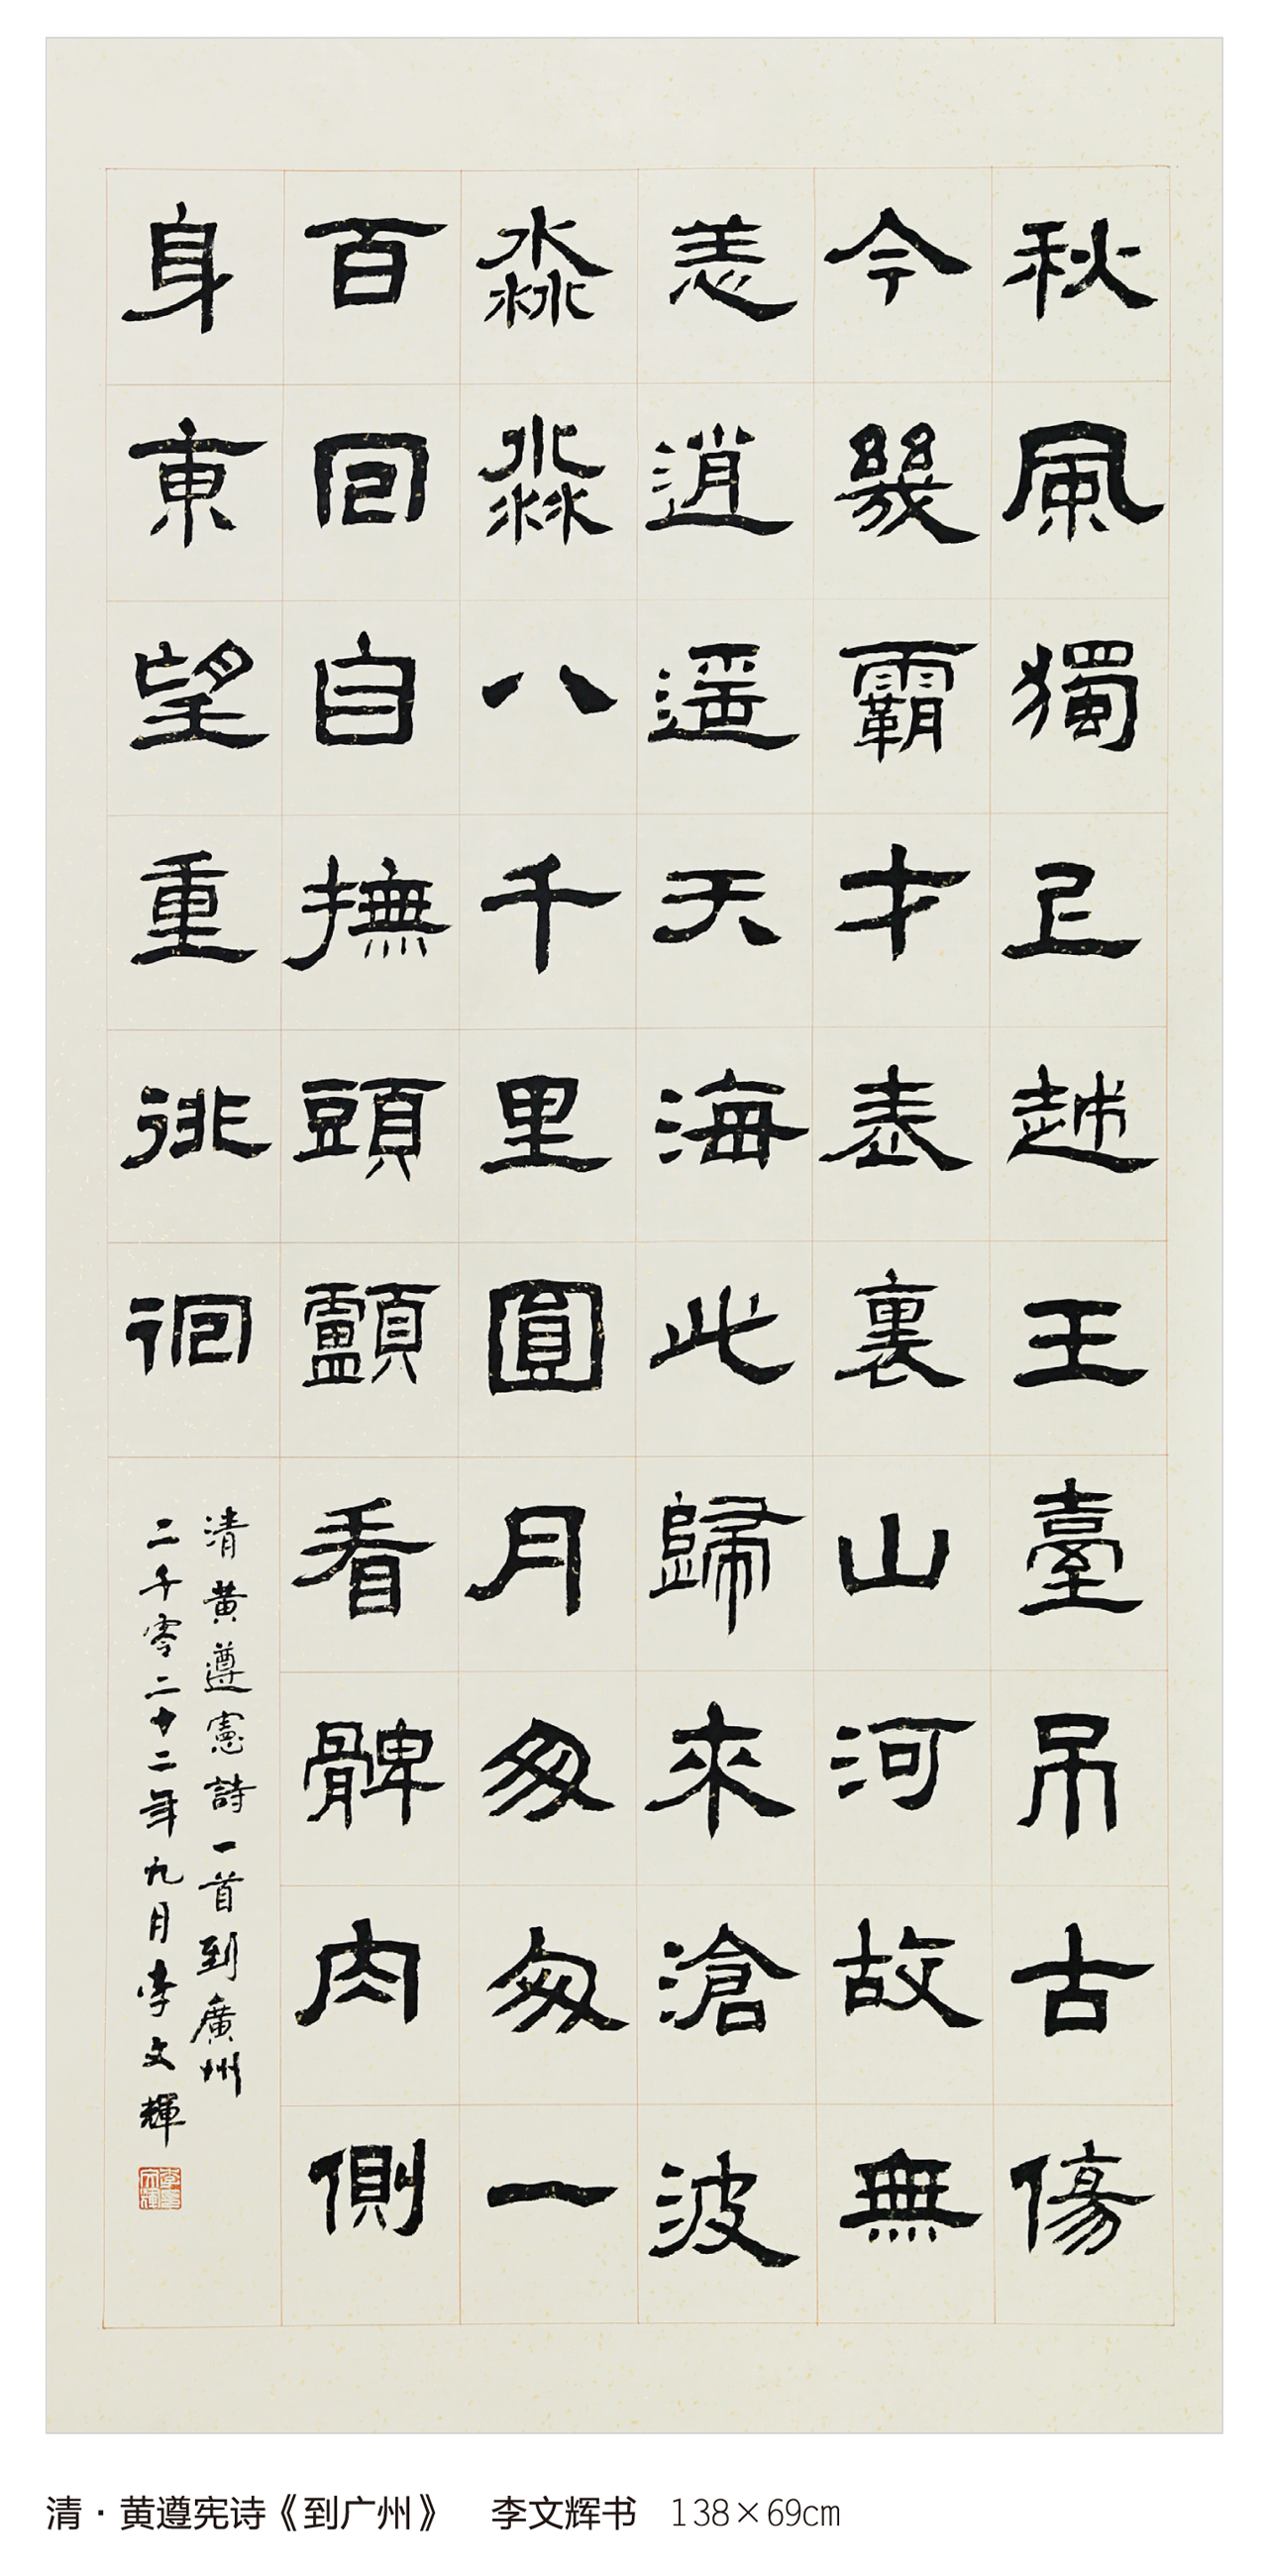 秋風獨上越王臺吊古傷
今幾霸才表裏山河故無
恙逍遥天海此歸來滄波
淼淼八千里圓月匆匆一
百回自撫頭顱看髀肉側
身東望重徘徊
清黄遵憲詩一首到廣州
二千零二十二年九月李文輝
清·黄遵宪诗《到广州》 李文辉书 138×69cm